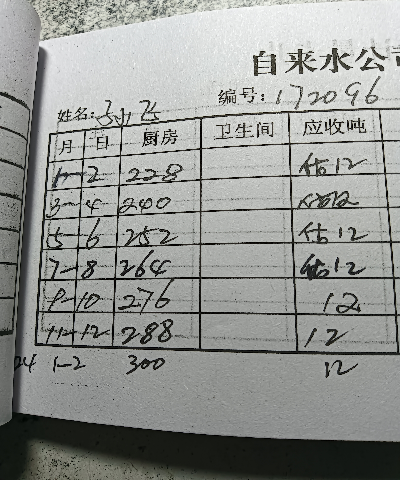 自来水公
编号:172096
姓名:
月 日 厨房 卫生间 应收吨
1-2 228 估12
3-4 240 估12
5-6 252 估12
7-8 264 估12
9-10 276 12
11-12 288 12
24 1-2 300 12